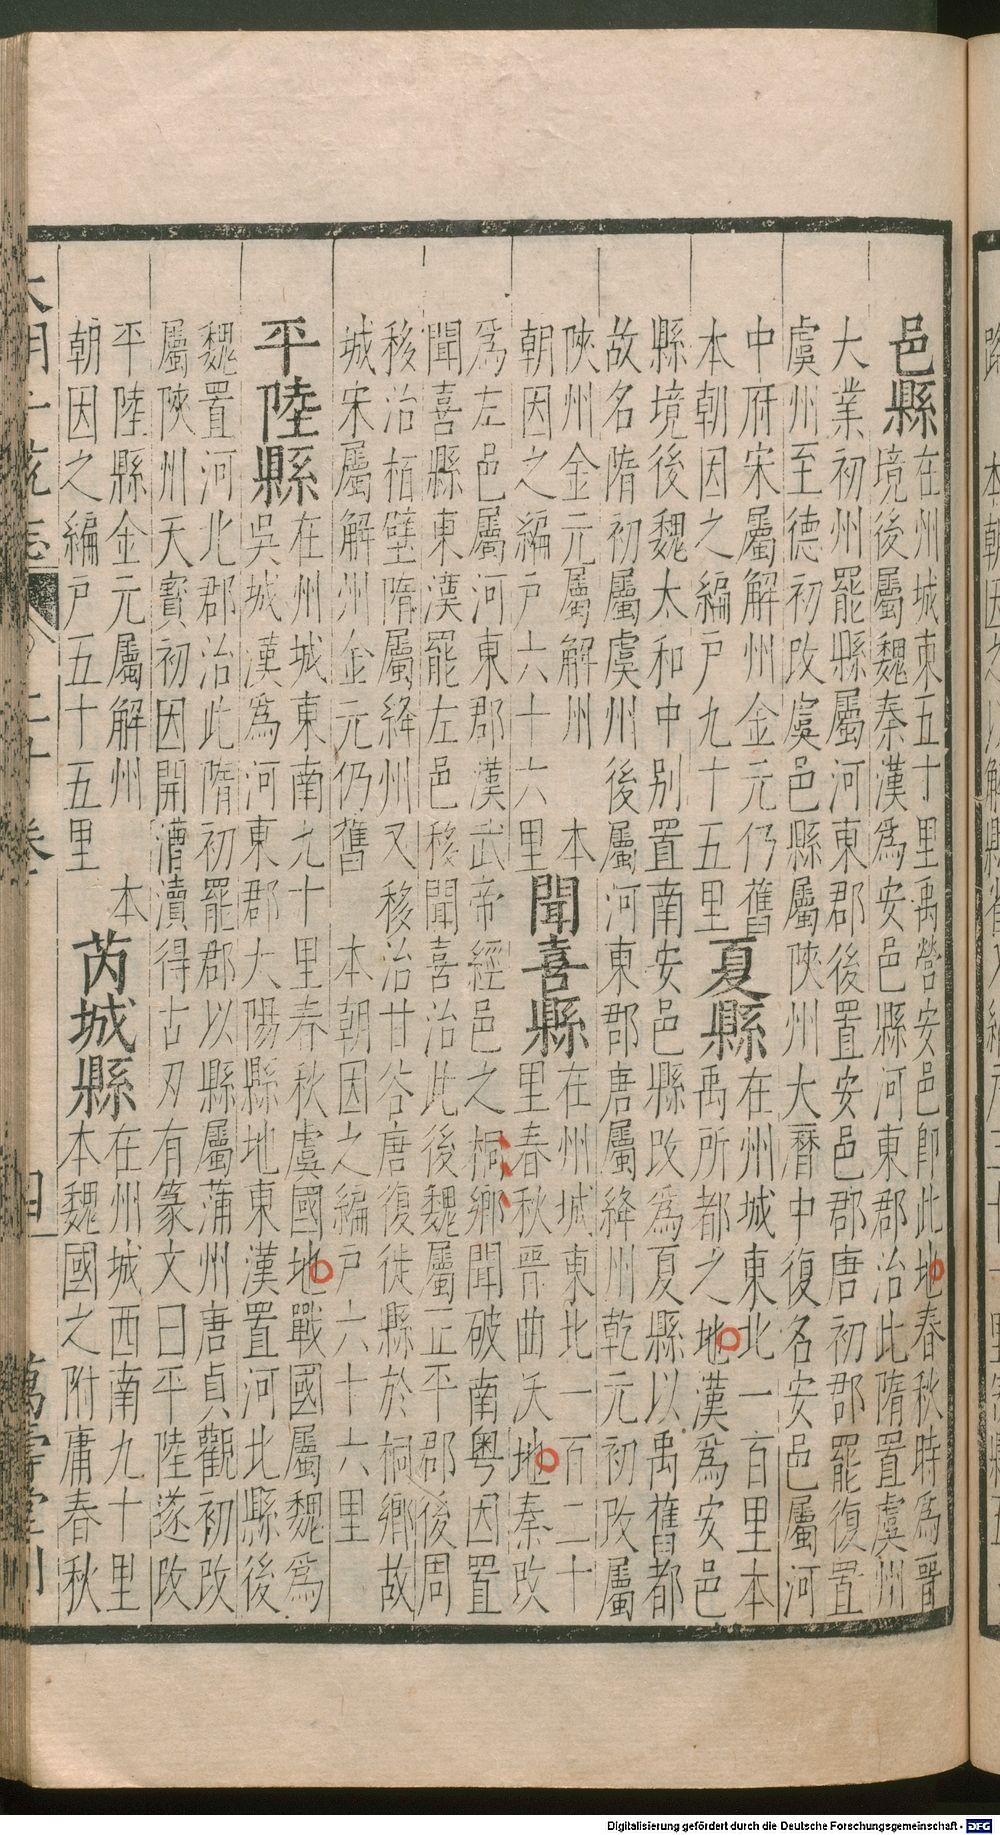 邑縣
在州城東五十里禹營安邑即此地春秋時為晉
境後屬魏秦漢為安邑縣河東郡治此隋置虞州
大業初州罷縣屬河東郡後置安邑郡唐初郡罷復置
虞州至德初改虞邑縣屬陝州大曆中復名安邑屬河
中府宋屬解州金元仍舊
本朝因之編戶九十五里
夏縣
在州城東北一百里本
禹所都之地漢為安邑
縣境後魏太和中別置南安邑縣改為夏縣以禹舊都
故名隋初屬虞州後屬河東郡唐屬絳州乾元初改屬
陝州金元屬解州 本
朝因之編戶六十六里
聞喜縣
在州城東北一百二十
里春秋晉曲沃地秦改
為左邑屬河東郡漢武帝經邑之桐鄉聞破南粵因置
聞喜縣東漢罷左邑移聞喜治此後魏屬正平郡後周
移治栢壁隋屬絳州又移治甘谷唐復徙縣於桐鄉故
城宋屬解州金元仍舊 本朝因之編戶六十六里
平陸縣
在州城東南九十里春秋虞國地戰國屬魏為
吳城漢為河東郡大陽縣地東漢置河北縣後
魏置河北郡治此隋初罷郡以縣屬蒲州唐貞觀初改
屬陝州天寶初因開漕瀆得古刃有篆文曰平陸遂改
平陸縣金元屬解州 本
朝因之編戶五十五里
芮城縣
在州城西南九十里
本魏國之附庸春秋
大明一統志 二十卷 四 萬壽堂刊
Digitalisierung gefördert durch die Deutsche Forschungsgemeinschaft - DFG